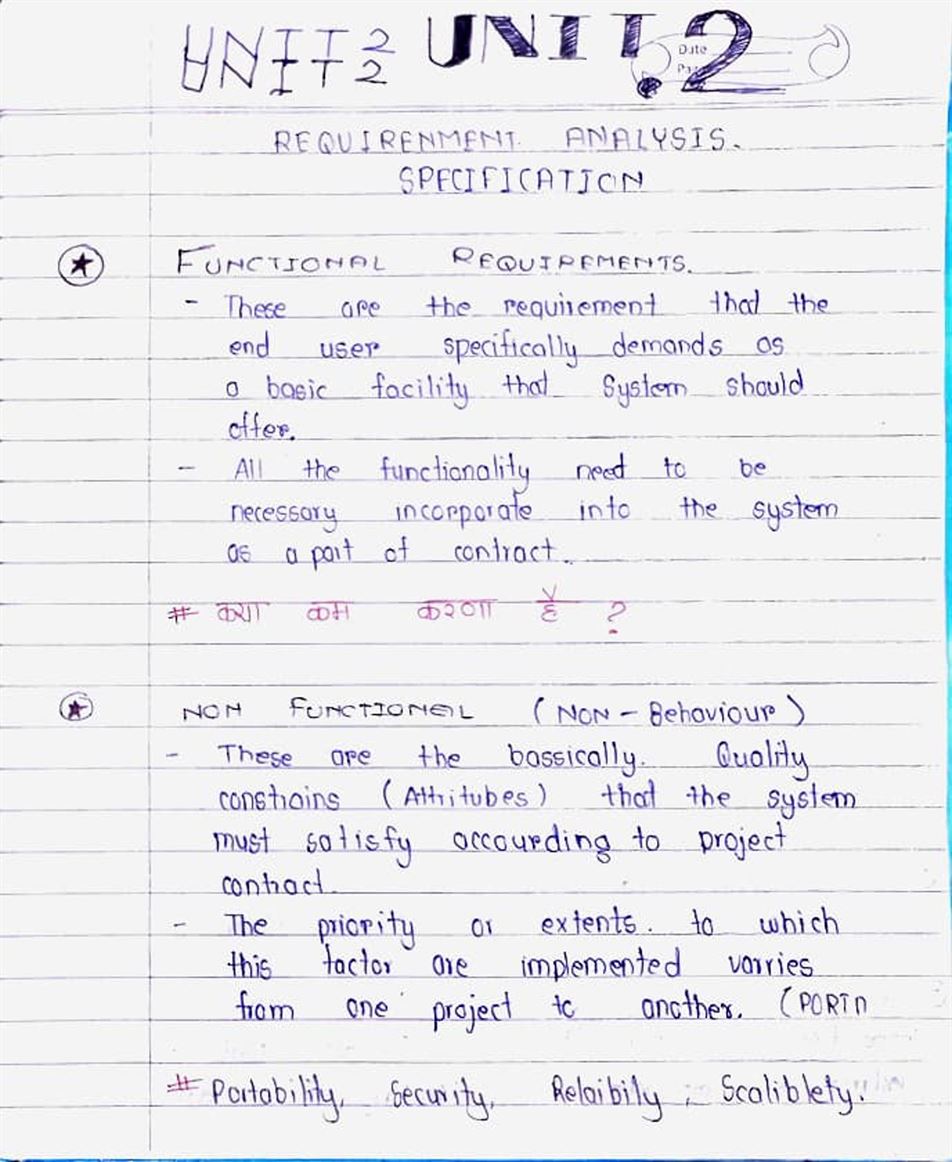 UNIT 2 UNIT.2
UNIT 2
Date
Pa
REQUIRENMENT. ANALYSIS.
SPECIFICATION
FUNCTIONAL REQUIREMENTS.
- These are the requirement that the
end user specifically demands as
a basic facility that System should
offer.
- All the functionality need to be
necessary incorporate into the system
as a part of contract.
# क्या कम करणा है ?
NON FUNCTIONEL (NON - Behaviour)
- These are the bassically. Quality
constrains (Attritubes) that the system
must satisfy accourding to project
contract
- The priority or extents. to which
this factor are implemented varries
from one project to another. (PORTN
# Portability, Security, Relaibily, Scaliblety.